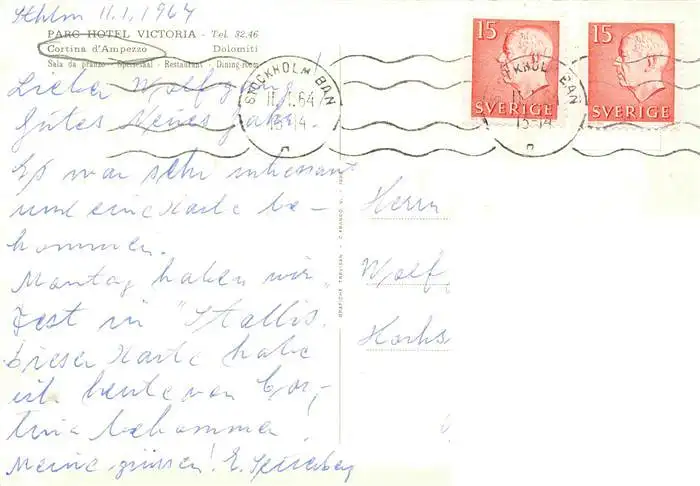 Sthlm 11.1.1964
PARC HOTEL VICTORIA - Tel. 32.46
Cortina d'Ampezzo Dolomiti
Sala da pranzo - Speisesaal - Restaurant - Dining-room
15 SVERIGE
15 SVERIGE
STOCKHOLM BAN
11.1.64
13-14
Lieber Wolfgang
Gutes Neues Jahr.
Es war sehr interessant
und eine Karte be-
kommen.
Montag haben wir
Fest in "Stallis.
Dieser Karte habe
ich heute von Cor-
tina bekommen!
Meine grüssen! E.
Herrn
Wolf
GRAFICHE TREVISAN - C. FRANCO V.